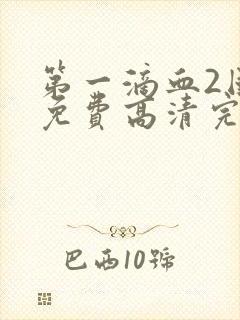 第一滴血2
免费高清完
巴西10號